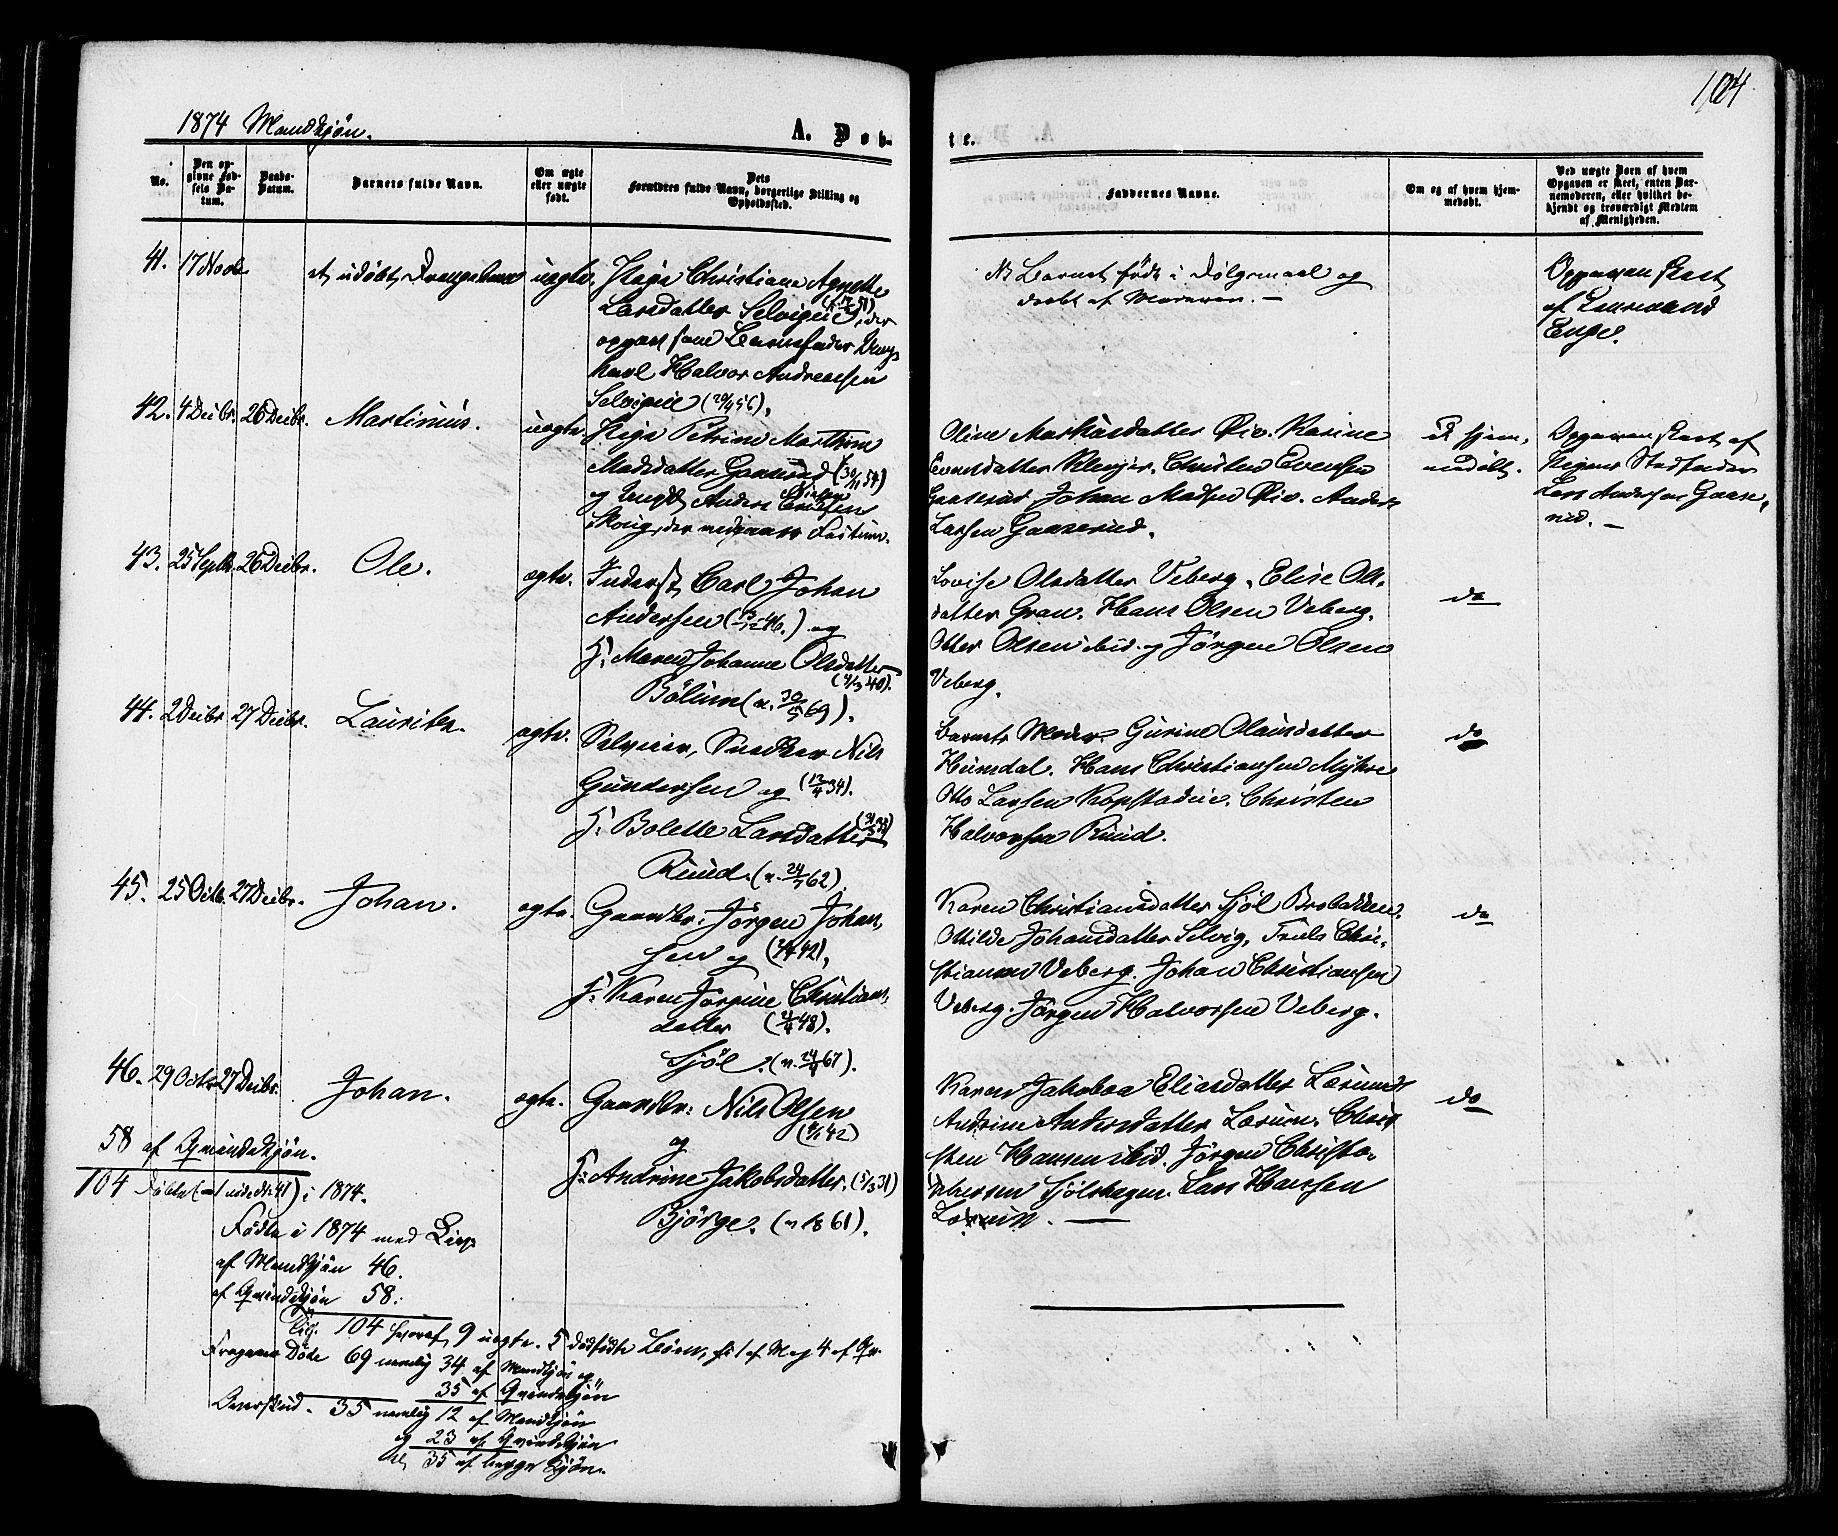 104.
1874 Mandkjøn.
A. Døb-
te.
No.
Den op-
givne Fød-
sels Da-
tum.
Daabs-
Datum.
Barnets fulde Navn.
Om ægte
eller uægte
født.
Dets
Forældres fulde Navn, borgerlige Stilling og
Opholdssted.
Faddernes Navne.
Om og af hvem hjem-
medøbt.
Ved uægte Børn af hvem
Opgaven er skeet, enten Bar-
nemoderen, eller hvilket be-
kjendt og troværdigt Medlem
af Menigheden.
41. 17 Novb. et udøbt Drengebarn uægte. Pige Christiane Agnethe
Larsdatter Selvigeie der
opgav som Barnefader Ung-
karl Halvor Andreasen
Selvigeie (20/4 56).
NB Barnet født i Dølgsmaal og
dræbt af Moderen. —
Opgaven skeet
af Lensmand
Enge.
42. 4 Decbr. 26 Decbr. Martinius. uægte. Pige Petrine Marthine
Madsdatter Gaaserud (30/11 54)
og Ungk. Anders Eriksen
Skoug, der nedgaar Fostrum.
Oline Markusdatter Øiv. Karine
Evensdatter Klevjer. Christen Evensen
Gaaserud Johan Madsen Øiv. Anders
Larsen Gaaserud.
Ei hjem-
medøbt.
Opgaven skeet af
Pigens Stedfader
Lars Andersen Gaase-
rud. —
43. 25 Septb. 26 Decbr. Ole. ægte. Inderst Carl Johan
Andersen ( 46.) og
H: Maren Johanne Olsdatter
(4/3 40).
Bølum (v. 30/5 69).
Lovise Olsdatter Veberg. Elise Ols-
datter Gran. Hans Olsen Veberg.
Otter Olsen ibid. og Jørgen Olsen
Veberg.
do
44. 2 Decbr 27 Decbr. Lauritz. ægte. Selveier, Snedker Nils
Gundersen og (12/4 34).
H: Bolette Larsdatter
Ruud. (v. 24/7 62)
Barnets Moder. Gurine Olausdatter
Humdal. Hans Christiansen Myhre
Otto Larsen Kopstadeie. Christen
Halvorsen Ruud.
do
45. 25 Octb. 27 Decbr. Johan. ægte. Gaardbr: Jørgen Johan-
sen og (42).
H: Karen Jørgine Christians-
datter (48).
Sjøl. (v. 67).
Karen Christiansdatter Sjøl Brobakken.
Othilde Johansdatter Selvig. Truls Chri-
stiansen Veberg. Johan Christiansen
Veberg. Jørgen Halvorsen Veberg.
do
46. 29 Octb 27 Decbr. Johan. ægte. Gaardbr: Nils Olsen
og (42)
H: Andrine Jakobsdatter. (5/3 31)
Bjørge. (v. 61).
Karen Jakobea Eliasdatter Lærum
Andrine Andersdatter Lærum. Chri-
sten Hansen ibid. Jørgen Christo-
phersen Sjølshagen. Lars Hansen
Lærum. —
do
58 af Qvindekjøn.
104 Døbte (÷ 1 udøbt: 41) i 1874.
Fødte i 1874 med Liv
af Mandkjøn 46.
af Qvindekjøn 58.
lig. 104 hvoraf 9 uægte. 5 dødfødte Børn, hv: 1 af M og 4 af Qv.
Fragaaer Døde 69 nemlig 34 af Mandkjøn og
35 af Qvindekjøn
Overskud. 35 nemlig 12 af Mandkjøn
og 23 af Qvindekjøn
35 af begge Kjøn.